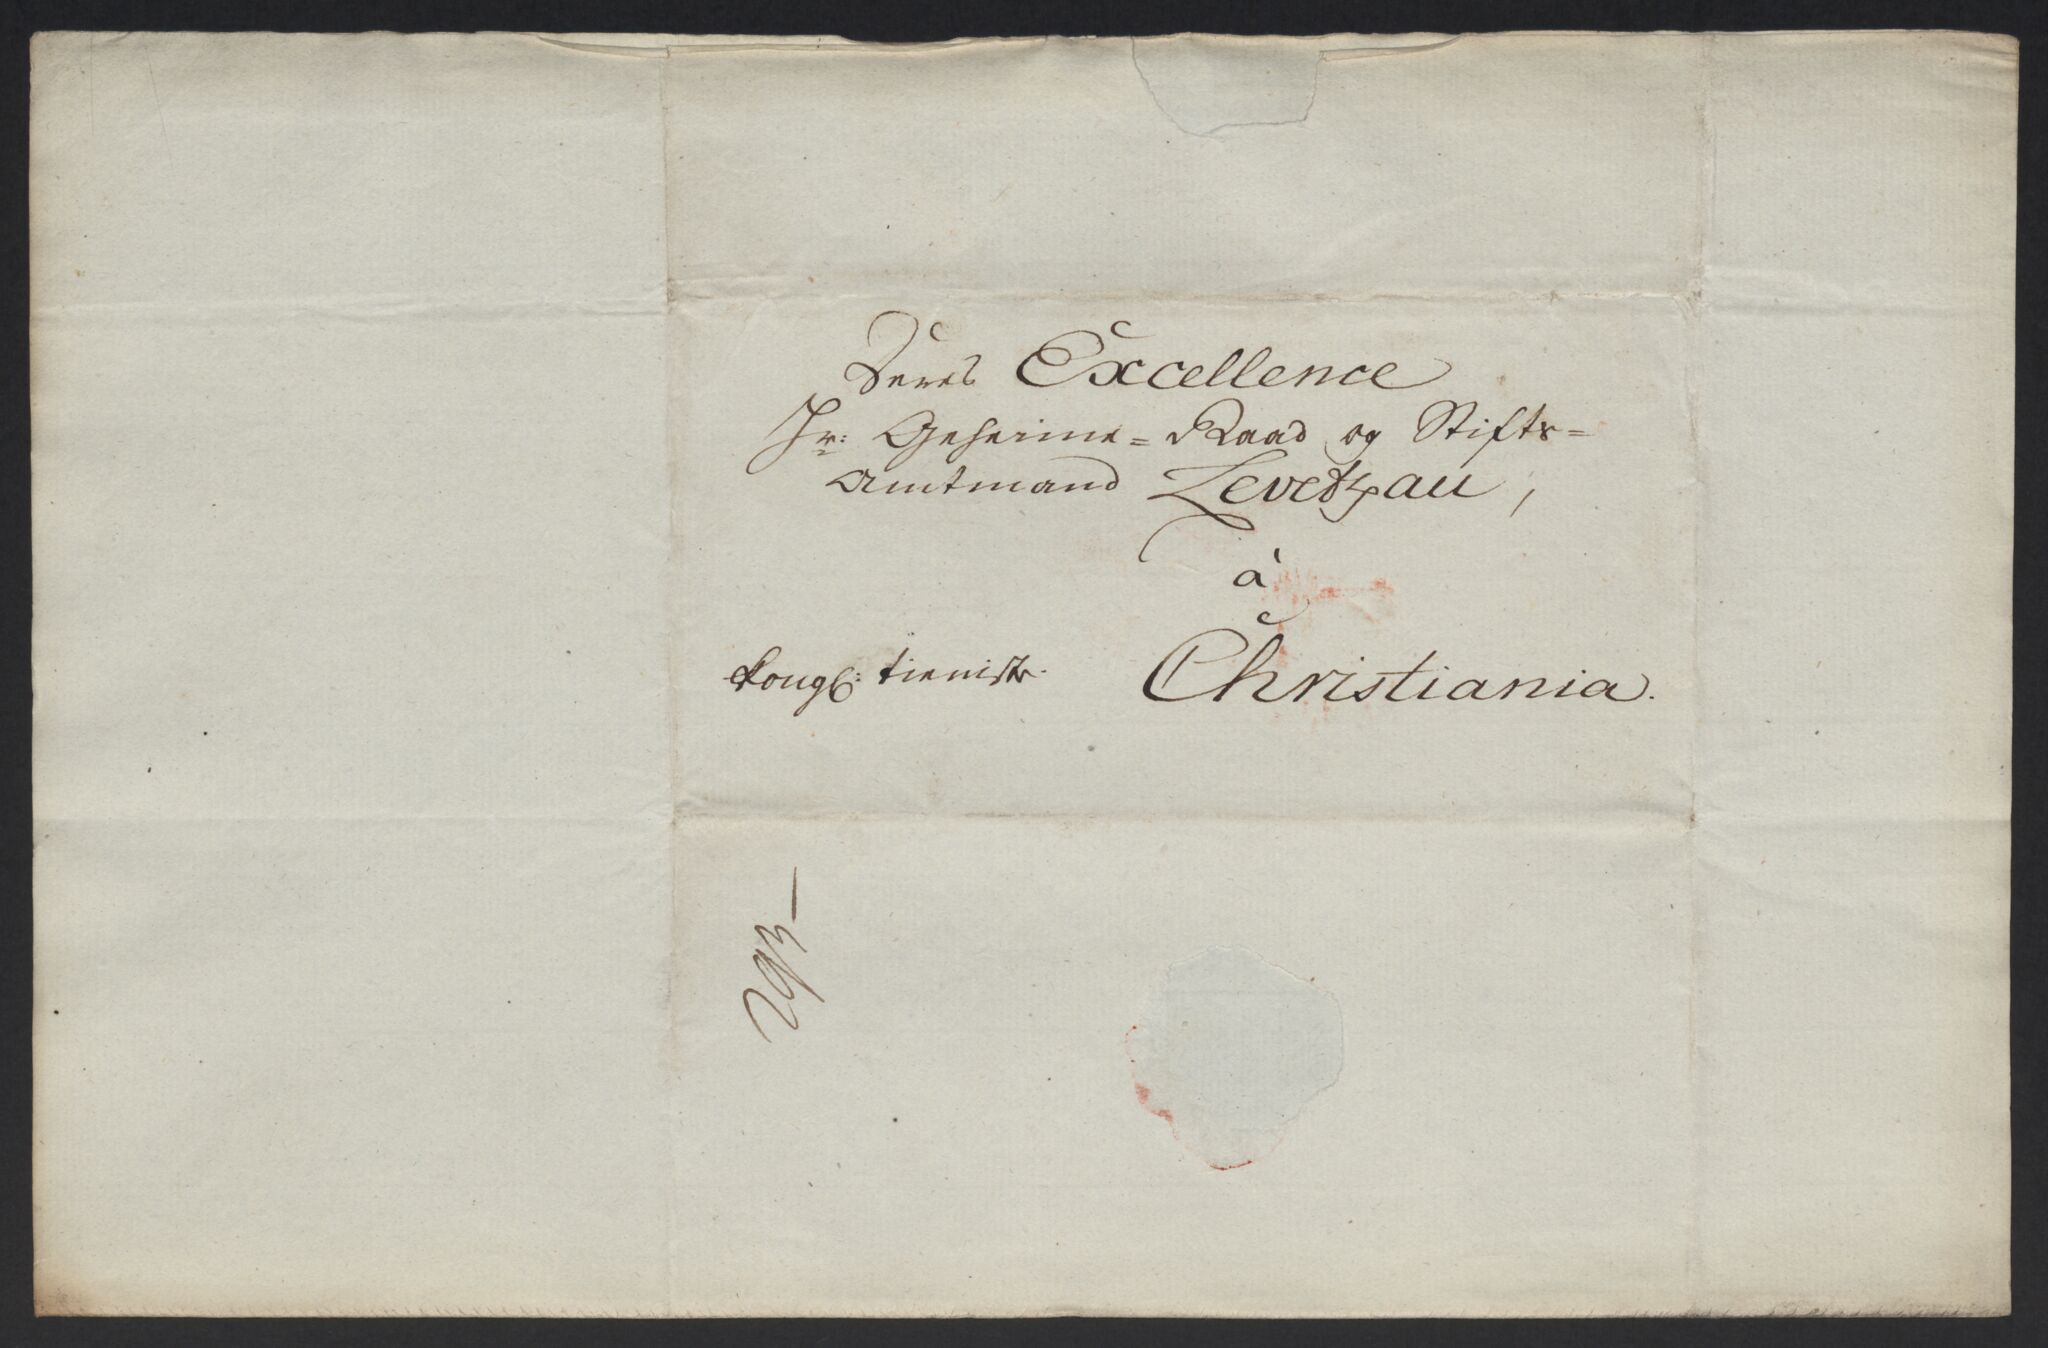 Deres Excellence
Hr: Geheime=Raad og Stifts=
Amtmand Levetzau,
à
Christiania.
Kongl: tieniste.